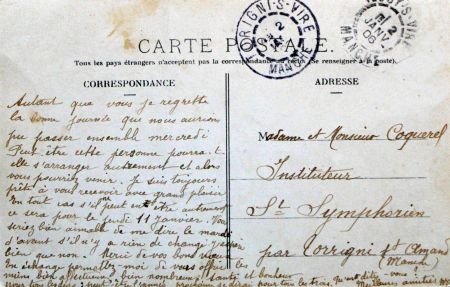 CARTE POSTALE
TORIGNI-S-VIRE
MANCHE
Tous les pays étrangers n'acceptent pas la correspondance au recto (Se renseigner à la poste).
CORRESPONDANCE
Autant que vous je regrette
la bonne journée que nous aurions
pu passer ensemble mercredi
Peut être cette personne pourrait
elle s'arranger autrement et alors
vous pourriez venir. Je suis toujours
prête à vous recevoir avec grand plaisir
En tout cas s'il peut en être autrement
ce sera pour le jeudi 11 janvier. Vous
seriez bien aimable de me dire le mardi
d'avant s'il n'y a rien de changé j'espère
bien que non. Merci de vos bons vœux
En échange permettez-moi de vous offrir les
miens bien affectueux et bien nombreux, santé et bonheur
pour tous les tras. qu'en dites-vous?
Meilleures amitiés
ADRESSE
Madame et Monsieur Coquerel
Instituteur
St Symphorien
par Torrigni St Amand
(Manche)